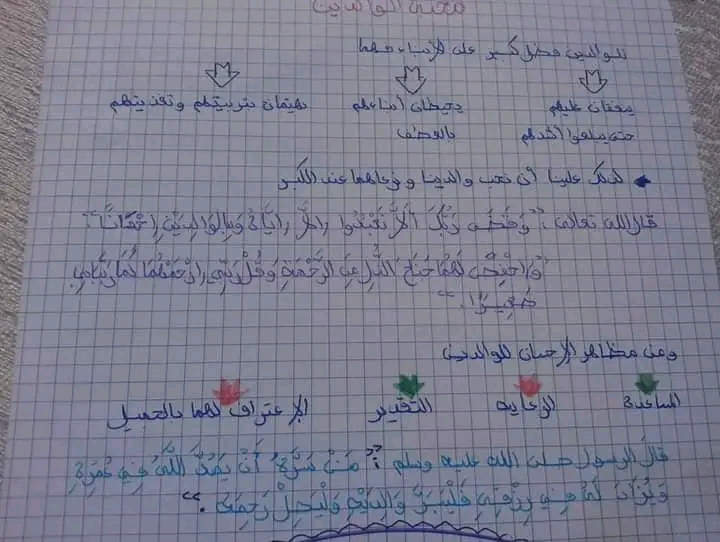 محبة الوالدين
للوالدين فضل كبير على الأبناء فهما
ينفقان عليهم يحيطان أبناءهم يهتمان بتربيتهم وتغذيتهم
حتى يبلغوا أشدهم بالعطف
لذلك علينا أن نحب والدينا ونرعاهما عند الكبر
قال الله تعالى : "وَقَضَى رَبُّكَ أَلاَّ تَعْبُدُوا إِلاَّ إِيَّاهُ وَبِالوَالِدَيْنِ إِحْسَانًا".
"وَاخْفِضْ لَهُمَا جَنَاحَ الذُّلِّ مِنَ الرَّحْمَةِ وَقُلْ رَبِّي ارْحَمْهُمَا كَمَا رَبَّيَانِي
صَغِيرًا."
ومن مظاهر الإحسان للوالدين
المساعدة الرعاية التقدير الإعتراف لهما بالجميل
قال الرسول صلى الله عليه وسلم : "مَنْ سَرَّهُ أَنْ يَمُدَّ اللَّهُ فِي عُمُرِهِ
وَيُزَادَ لَهُ فِي رِزْقِهِ فَلْيَبَرَّ وَالِدَيْهِ وَلْيَصِلْ رَحِمَهُ."